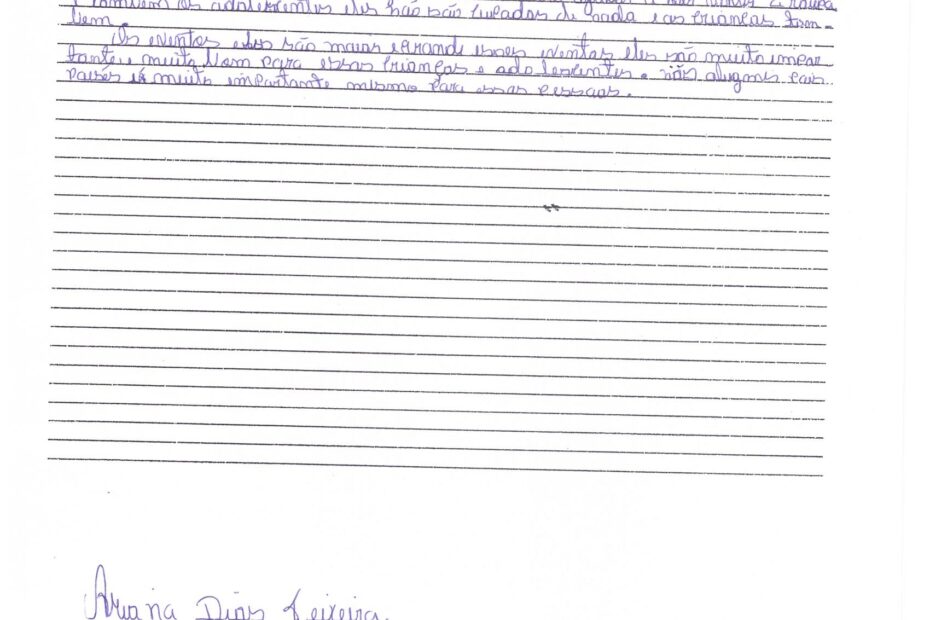 também os adolescentes eles não são culpados de nada e as crianças tam-
bem.
Os eventos eles são maior e grande esses eventos eles são muito impor
tante e muito bem para essas crianças e adolescentes. nas alguns cas
muito importante mesmo para essas pessoas.
Ariana Dias Teixeira